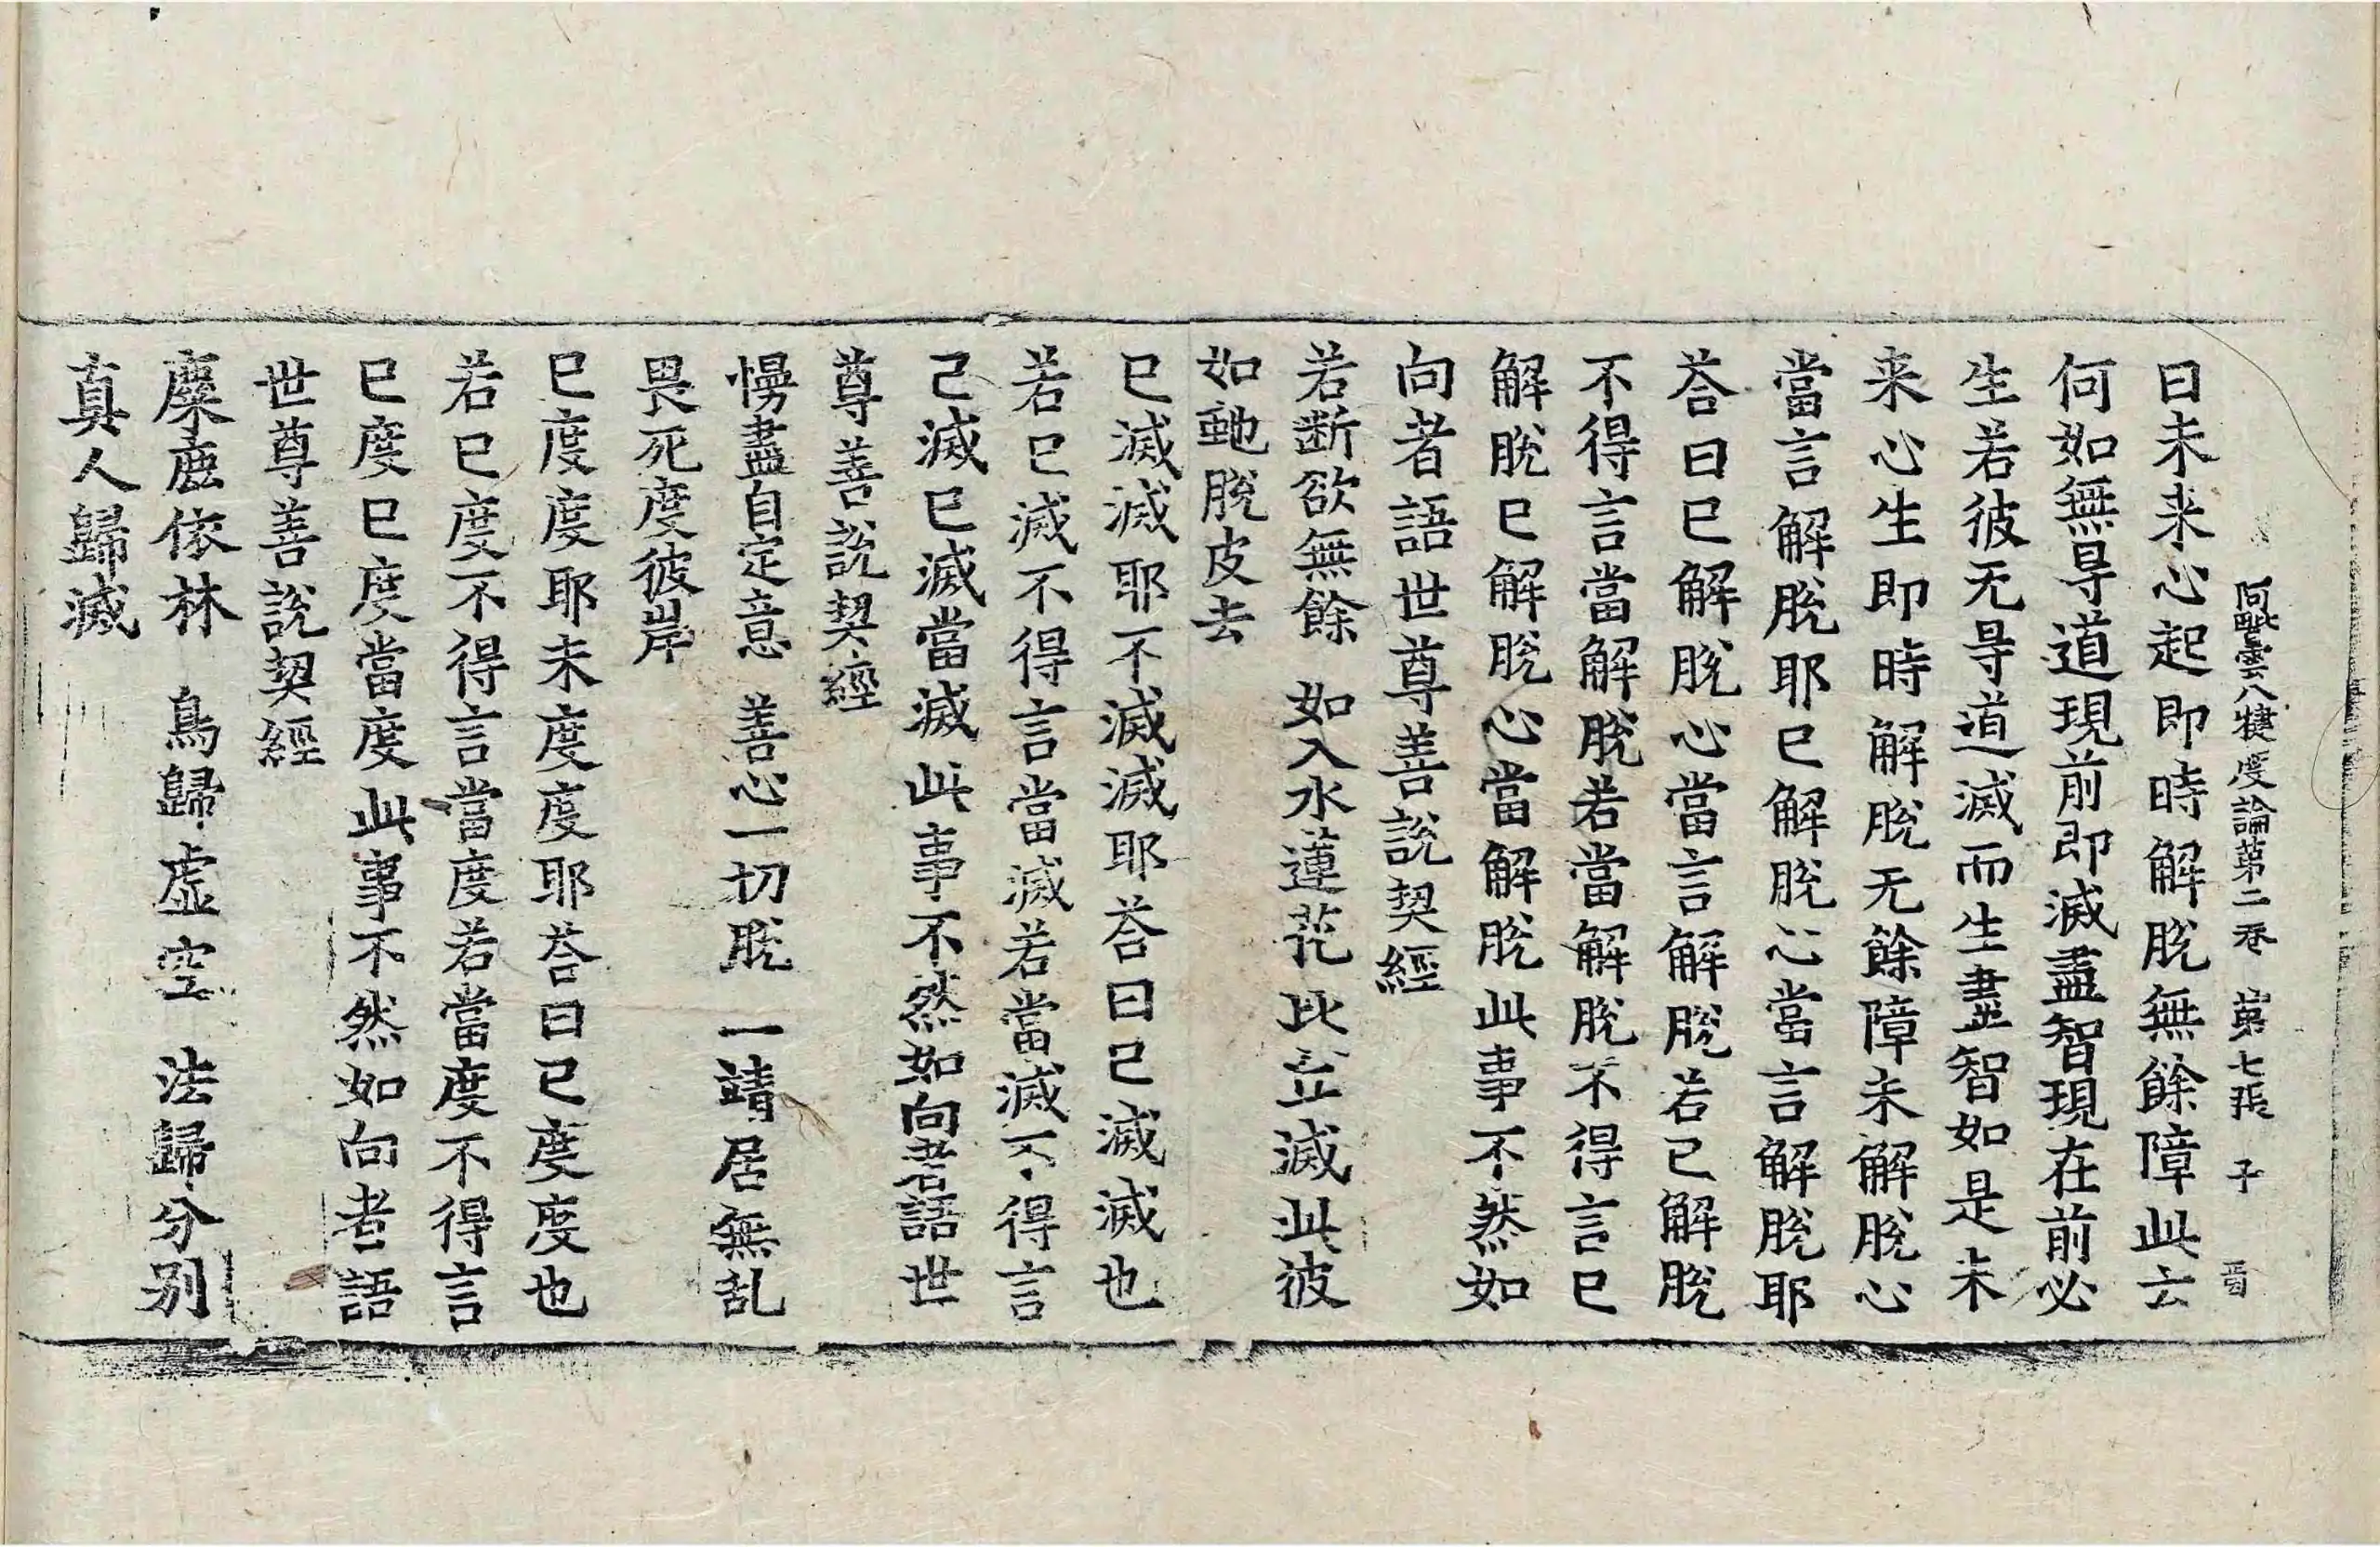 阿毗曇八犍度論第二卷 第七張 子
曰未来心起即時解脫無餘障此云
何如無㝵道現前即滅盡智現在前必
生若彼无㝵道滅而生盡智如是未
来心生即時解脫无餘障未解脫心
當言解脫耶已解脫心當言解脫耶
荅曰已解脫心當言解脫若已解脫
不得言當解脫若當解脫不得言已
解脫已解脫心當解脫此事不然如
向者語世尊善說契經
若断欲無餘 如入水蓮花比丘滅此彼
如虵脫皮去
已滅滅耶不滅滅耶荅曰已滅滅也
若已滅不得言當滅若當滅不得言
已滅已滅當滅此事不然如向者語世
尊善說契經
慢盡自定意 善心一切脫 一靖居無乱
畏死度彼岸
已度度耶未度度耶荅曰已度度也
若已度不得言當度若當度不得言
已度已度當度此事不然如向者語
世尊善說契經
麋鹿依林 鳥歸虛空 法歸分別
真人歸滅